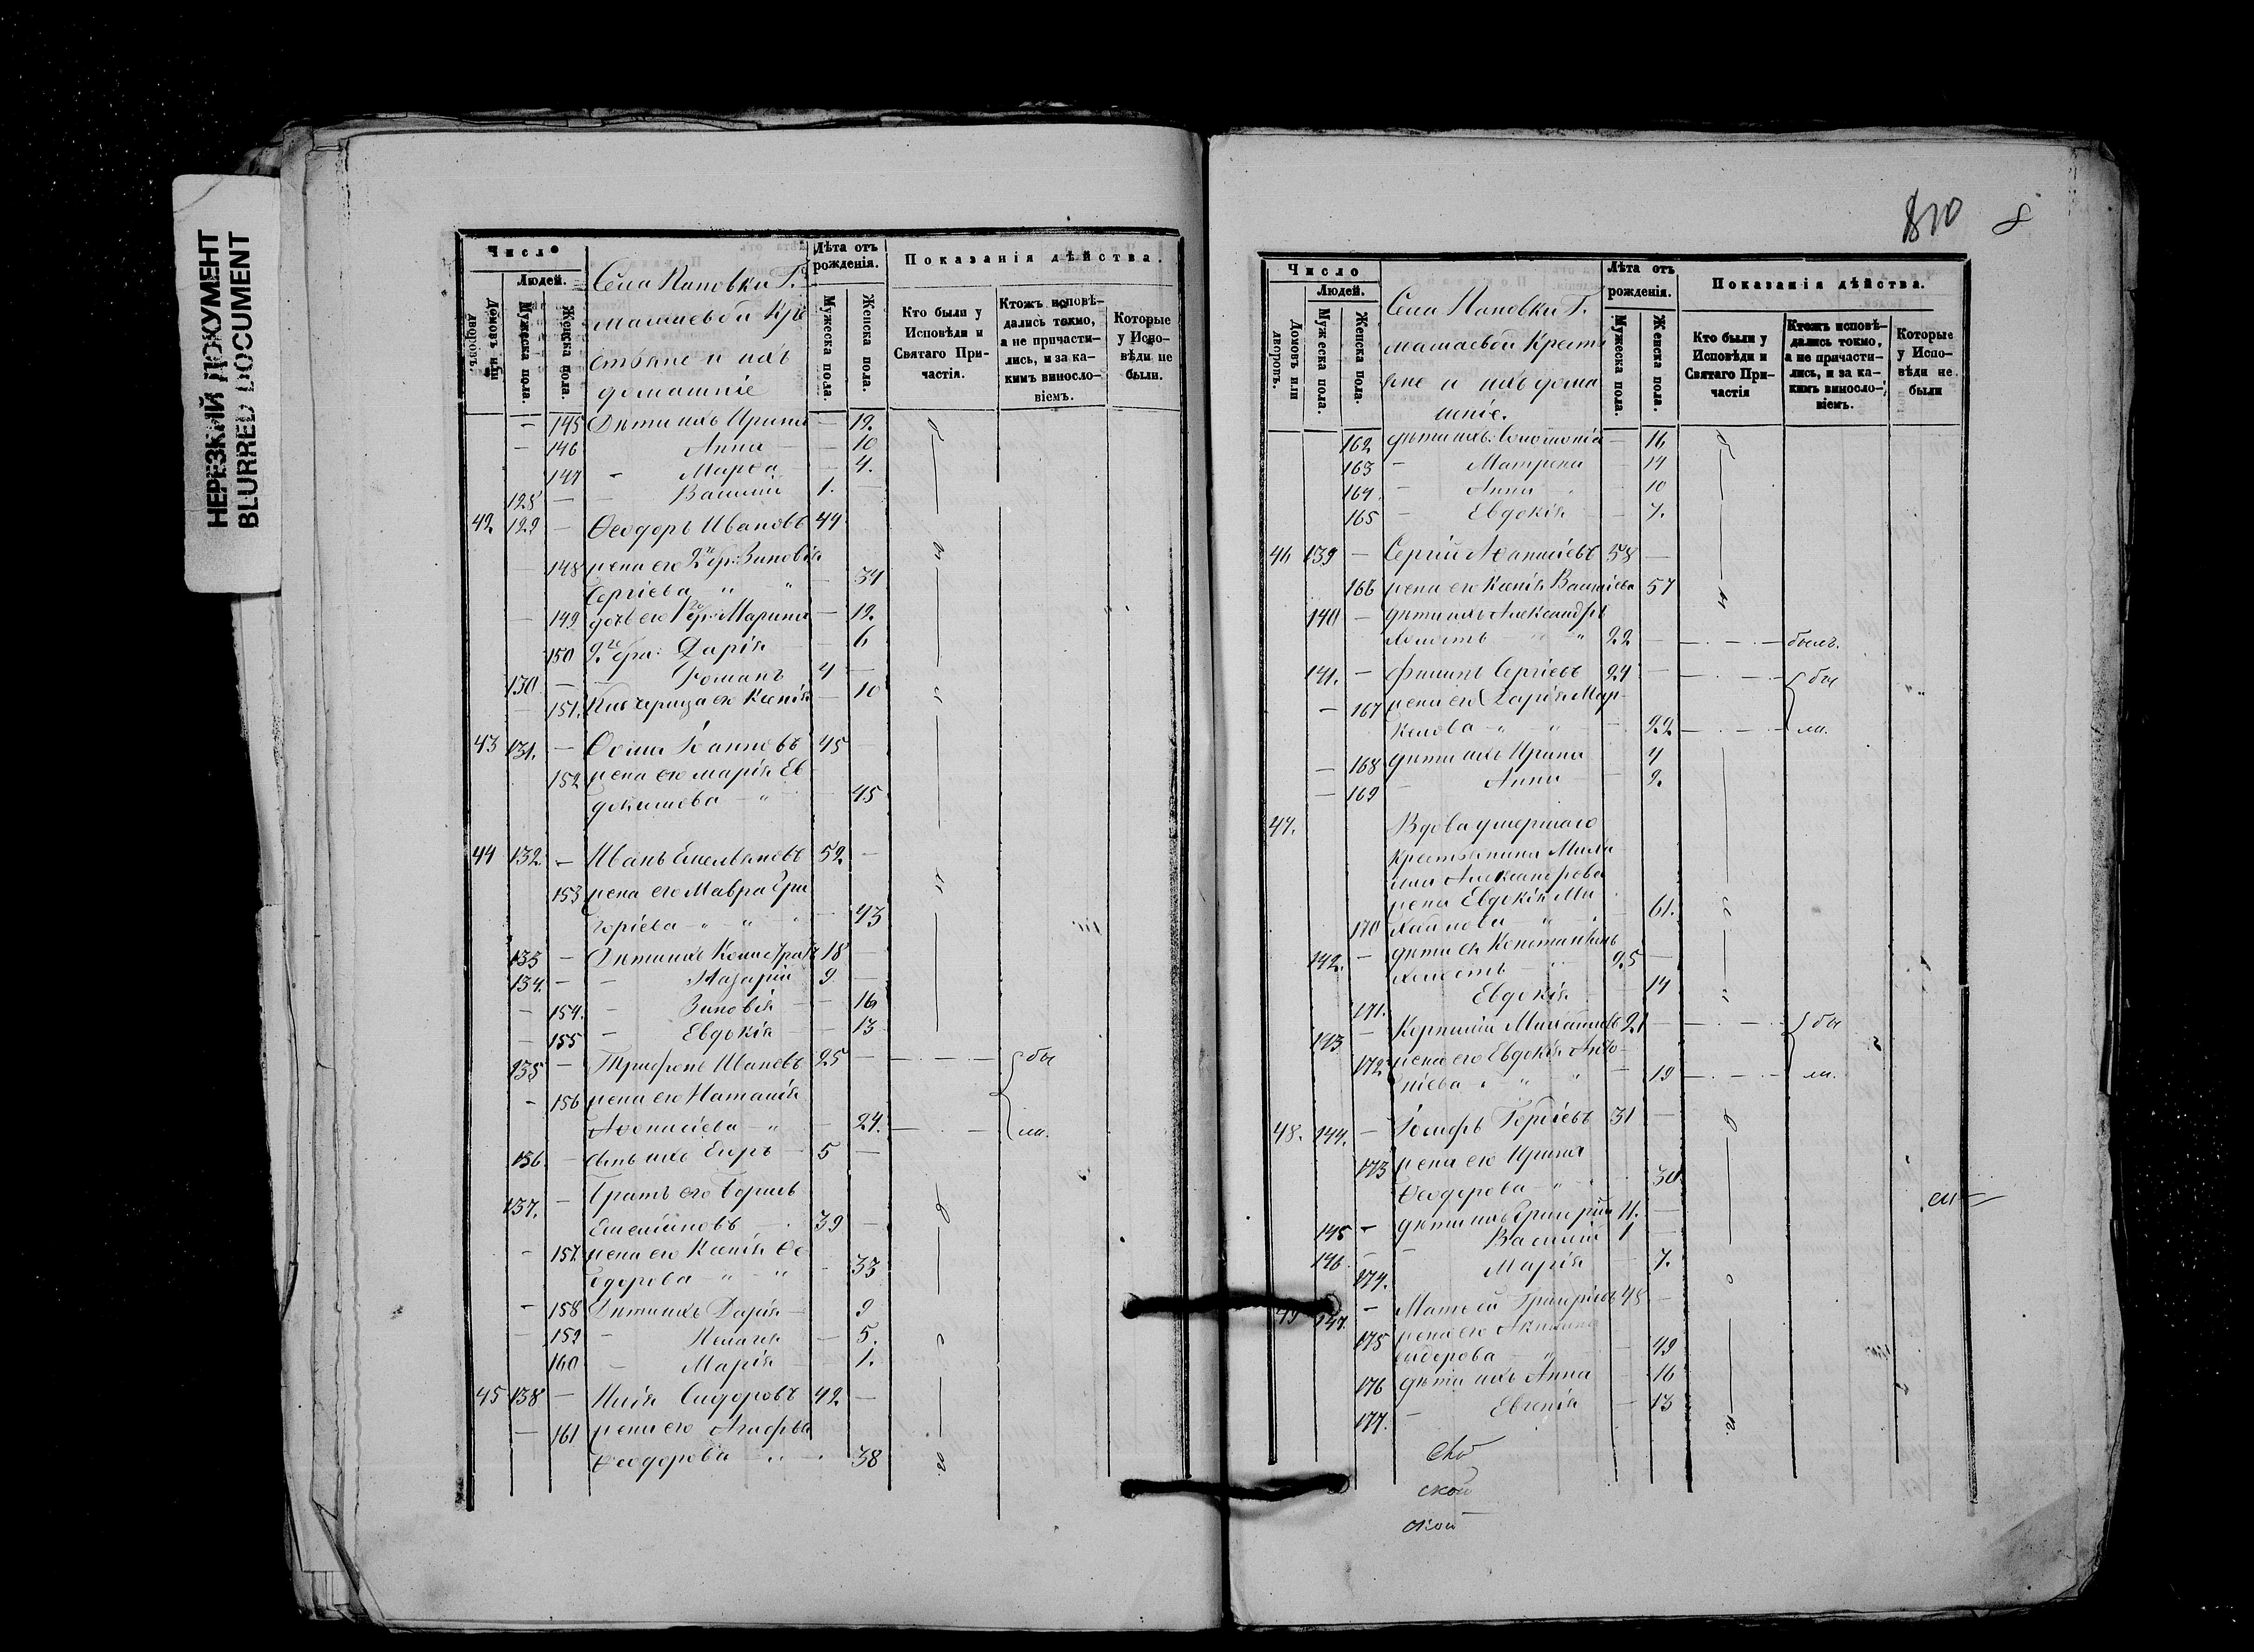 НЕРЕЗКИЙ ДОКУМЕНТ
BLURRED DOCUMENT
Число
Людей.
Домовъ или дворовъ.
Мужеска пола.
Женска пола.
Села Поповки Г.
машаевой Кре
стьяне и ихъ
домашніе
Лѣта отъ рожденія.
Мужеска пола.
Женска пола.
Показанія дѣйства.
Кто были у Исповѣди и Святаго Причастія.
Ктожъ исповѣдались токмо, а не причастились, и за какимъ винословіемъ.
Которые у Исповѣди не были.
— 145 Дѣти ихъ Ирина — 12.
— 146 Анна — 10
147 — Марѳа — 4.
128 — — Василій 1. —
42 129 — Ѳеодоръ Ивановъ 44
148 жена его 2 бр: Зиновія
Сергіева " " — 34
— 149 дочь его 1 бр: Марина — 12.
150 2 бра: Дарія — 6
130 — — Романъ 4 —
— 151. Ксенія — 10
43 131. — Іоанновъ 45 —
152 жена его Марія Ев
докимова — " — 45
44 132. — Иванъ Емельяновъ 52. —
153 жена его Мавра Гри
горіева — " — " — 43
133 — Дѣти ихъ 18 —
134. — — Назарій 9 —
— 154. — Зиновія — 16
— 155 — Евдокія — 13
135 — Трифонъ Ивановъ 25 — — · — · — бы
— 156 жена его Наталія
Аѳанасіева — " — 24. — · — ли.
136. — сынъ ихъ Егоръ — 5 —
137. — Братъ его Борисъ
Емеліановъ — 39 —
— 157. жена его Ксенія Ѳе
одорова — " — " — 33
— 158 Дѣти ихъ Дарія — 9
— 159 — Пелагія — 5.
160 — Марія — 1.
45 138 — Илія Сидоровъ 42. —
— 161 жена его Агафья
Ѳеодорова — 38
810 8
Число
Людей.
Домовъ или дворовъ.
Мужеска пола.
Женска пола.
Села Поповки Г.
машаевой Кресть
яне и ихъ дома
шніе.
Лѣта отъ рожденія.
Мужеска пола.
Женска пола.
Показанія дѣйства.
Кто были у Исповѣди и Святаго Причастія
Ктожъ исповѣдались токмо, а не причастились, и за какимъ винословіемъ.
Которые у Исповѣди не были
162 дѣти ихъ: Соломонія — 16
163 — Матрена — 14
164. — Анна — 10
165 — Евдокія — 7.
46 139 — Сергій Аѳанасіевъ 58 —
166 жена его Ксенія Василіева 57
140 — дѣти ихъ Александръ
холостъ — " " 22 — — · — · — былъ.
141. — Филипъ Сергіевъ 24 — — · — · — бы
— 167 жена его Дарія Мар
келова — " " — 22 — · — · — ли.
— 168 дѣти ихъ Ирина 4
— 169 — Анна — 2.
47. Вдова умершаго
крестьянина Миха
ила Александрова
жена Евдокія Ми
170 хайлова " — 61.
142. — дѣти ея Константинъ
холостъ — " 25 —
171. Евдокія — 14
143 — Михайловъ 21 — — · — · — бы
172 жена его Евдокія Анто
ніева " " " — 19 — · — · — ли.
48. 144. — Іосифъ 31 —
173 жена его Ирина
Ѳеодорова — " — 30
145 — дѣти ихъ Григорій 11. —
146 — — Василій 1 —
174. — Марія — 7.
49 147. — Матѳей Григоріевъ 48 —
175 жена его Акилина
Сидорова — " — 49
176 дѣти ихъ Анна — 16
177. — Евгенія — 13
ской
ской